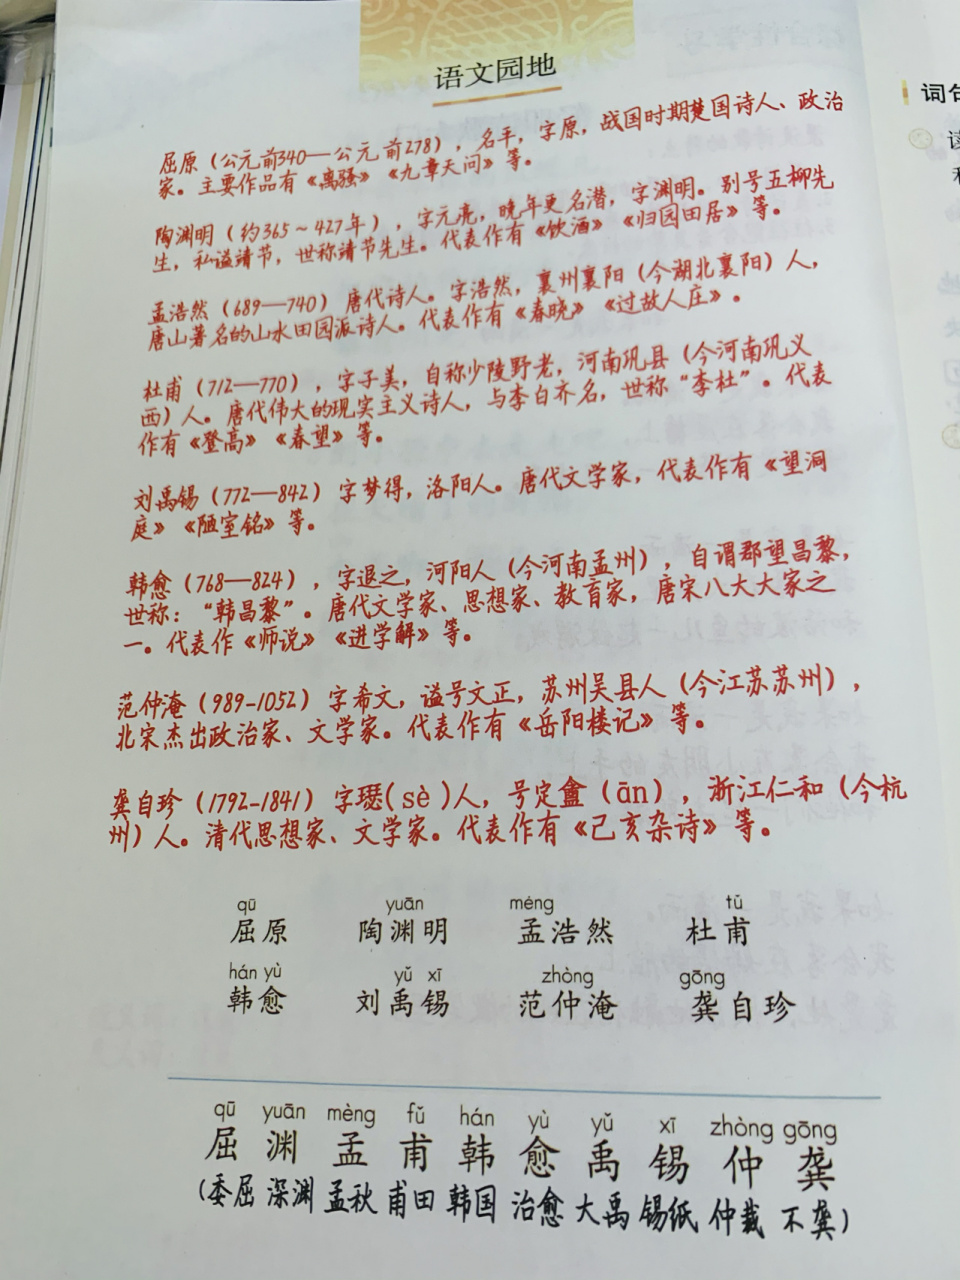 语文园地
屈原（公元前340—公元前278），名平，字原，战国时期楚国诗人、政治
家。主要作品有《离骚》《九章天问》等。
陶渊明（约365～427年），字元亮，晚年更名潜，字渊明。别号五柳先
生，私谥靖节，世称靖节先生。代表作有《饮酒》《归园田居》等。
孟浩然（689—740）唐代诗人。字浩然，襄州襄阳（今湖北襄阳）人，
唐山著名的山水田园派诗人。代表作有《春晓》《过故人庄》。
杜甫（712—770），字子美，自称少陵野老，河南巩县（今河南巩义
西）人。唐代伟大的现实主义诗人，与李白齐名，世称“李杜”。代表
作有《登高》《春望》等。
刘禹锡（772—842）字梦得，洛阳人。唐代文学家，代表作有《望洞
庭》《陋室铭》等。
韩愈（768—824），字退之，河阳人（今河南孟州），自谓郡望昌黎，
世称：“韩昌黎”。唐代文学家、思想家、教育家，唐宋八大大家之
一。代表作《师说》《进学解》等。
范仲淹（989-1052）字希文，谥号文正，苏州吴县人（今江苏苏州），
北宋杰出政治家、文学家。代表作有《岳阳楼记》等。
龚自珍（1792-1841）字璱(sè)人，号定盦（ān），浙江仁和（今杭
州）人。清代思想家、文学家。代表作有《己亥杂诗》等。
qū yuān mèng fǔ
屈原 陶渊明 孟浩然 杜甫
hán yù yǔ xī zhòng gōng
韩愈 刘禹锡 范仲淹 龚自珍
qū yuān mèng fǔ hán yù yǔ xī zhòng gōng
屈 渊 孟 甫 韩 愈 禹 锡 仲 龚
（委屈 深渊 孟秋 甫田 韩国 治愈 大禹 锡纸 仲裁 不龚）
词句